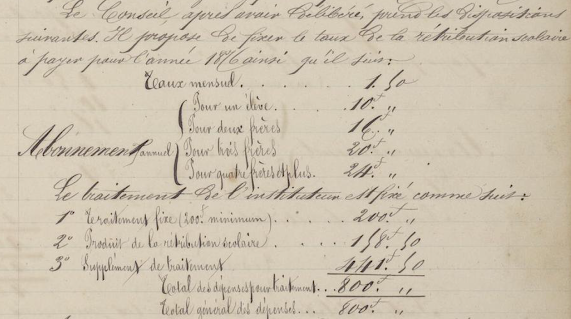 Le Conseil après avoir délibéré, prend les dispositions
suivantes. Il propose de fixer le taux de la rétribution scolaire
à payer pour l'année 1876 ainsi qu'il suit:
Taux mensuel . . . . . . . 1. 50
Pour un élève . . . . . 10.f „
Pour deux frères 16. „
Abonnement annuel Pour trois frères 20.f „
Pour quatre frères et plus. 24.f „
Le traitement de l'instituteur est fixé comme suit:
1° Traitement fixe (200.f minimum) . . . 200.f „
2° Produit de la rétribution scolaire . . . . 158.f 50
3° Supplément de traitement 441.f 50
Total des dépenses pour traitement . . 800.f „
Total général des dépenses . . . 800.f „